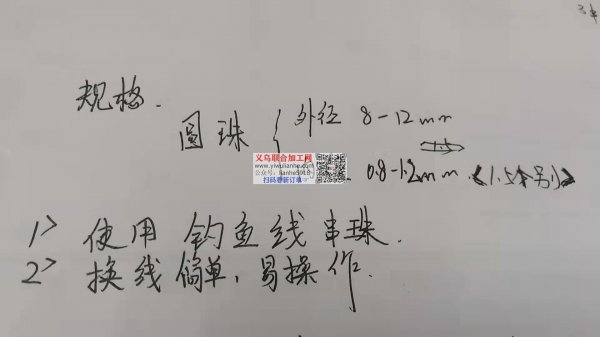 规格.
圆珠 { 外径 8-12mm
0.8-1.2mm (1.5个别)
义乌联合加工网
www.yiwulianhe.com
公众号: lianhe5918
扫码看新订单
1> 使用钓鱼线串珠.
2> 换线简单, 易操作.